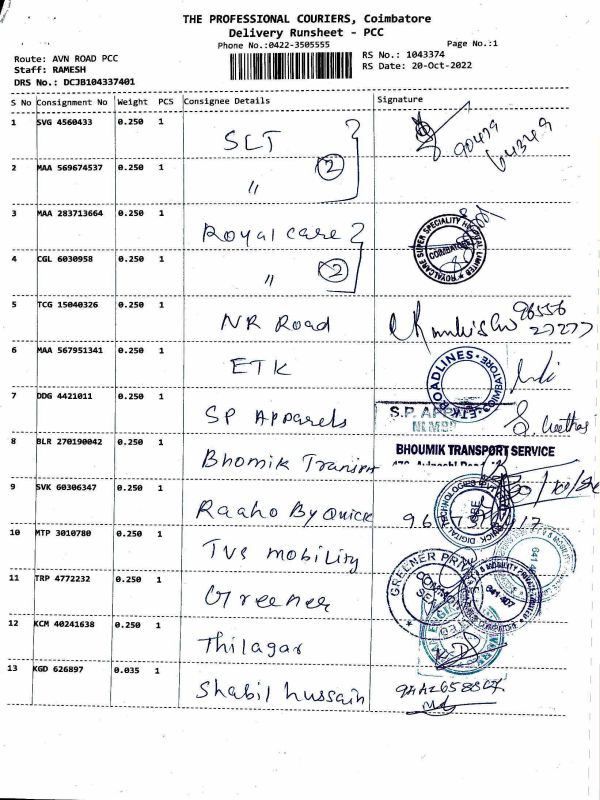 THE PROFESSIONAL COURIERS, Coimbatore
Delivery Runsheet - PCC
Phone No.:0422-3505555
Page No.:1
Route: AVN ROAD PCC
RS No.: 1043374
Staff: RAMESH
RS Date: 20-Oct-2022
DRS No.: DCJB104337401
S No Consignment No Weight PCS Consignee Details Signature
1 SVG 4560433 0.250 1 SLT 90479
64349
2 MAA 569674537 0.250 1 〃 2
3 MAA 283713664 0.250 1 Royal care
ROYALCARE SUPER SPECIALITY HOSPITAL LIMITED
COIMBATORE
4 CGL 6030958 0.250 1 〃 2
5 TCG 15040326 0.250 1 NR Road 96556
27277
6 MAA 567951341 0.250 1 ETK
ETK ROADLINES
7 DDG 4421011 0.250 1 SP Apparels
S.P. AP
8 BLR 270190042 0.250 1 Bhomik Transport
BHOUMIK TRANSPORT SERVICE
9 SVK 60306347 0.250 1 Raaho By Quick
QUICK DIGITAL TECHNOLOGIES
10 MTP 3010780 0.250 1 TVS mobility
641 407
11 TRP 4772232 0.250 1 Greener
GREENER PRIV
12 KCM 40241638 0.250 1 Thilagar
13 KGD 626897 0.035 1 Shabil hussain